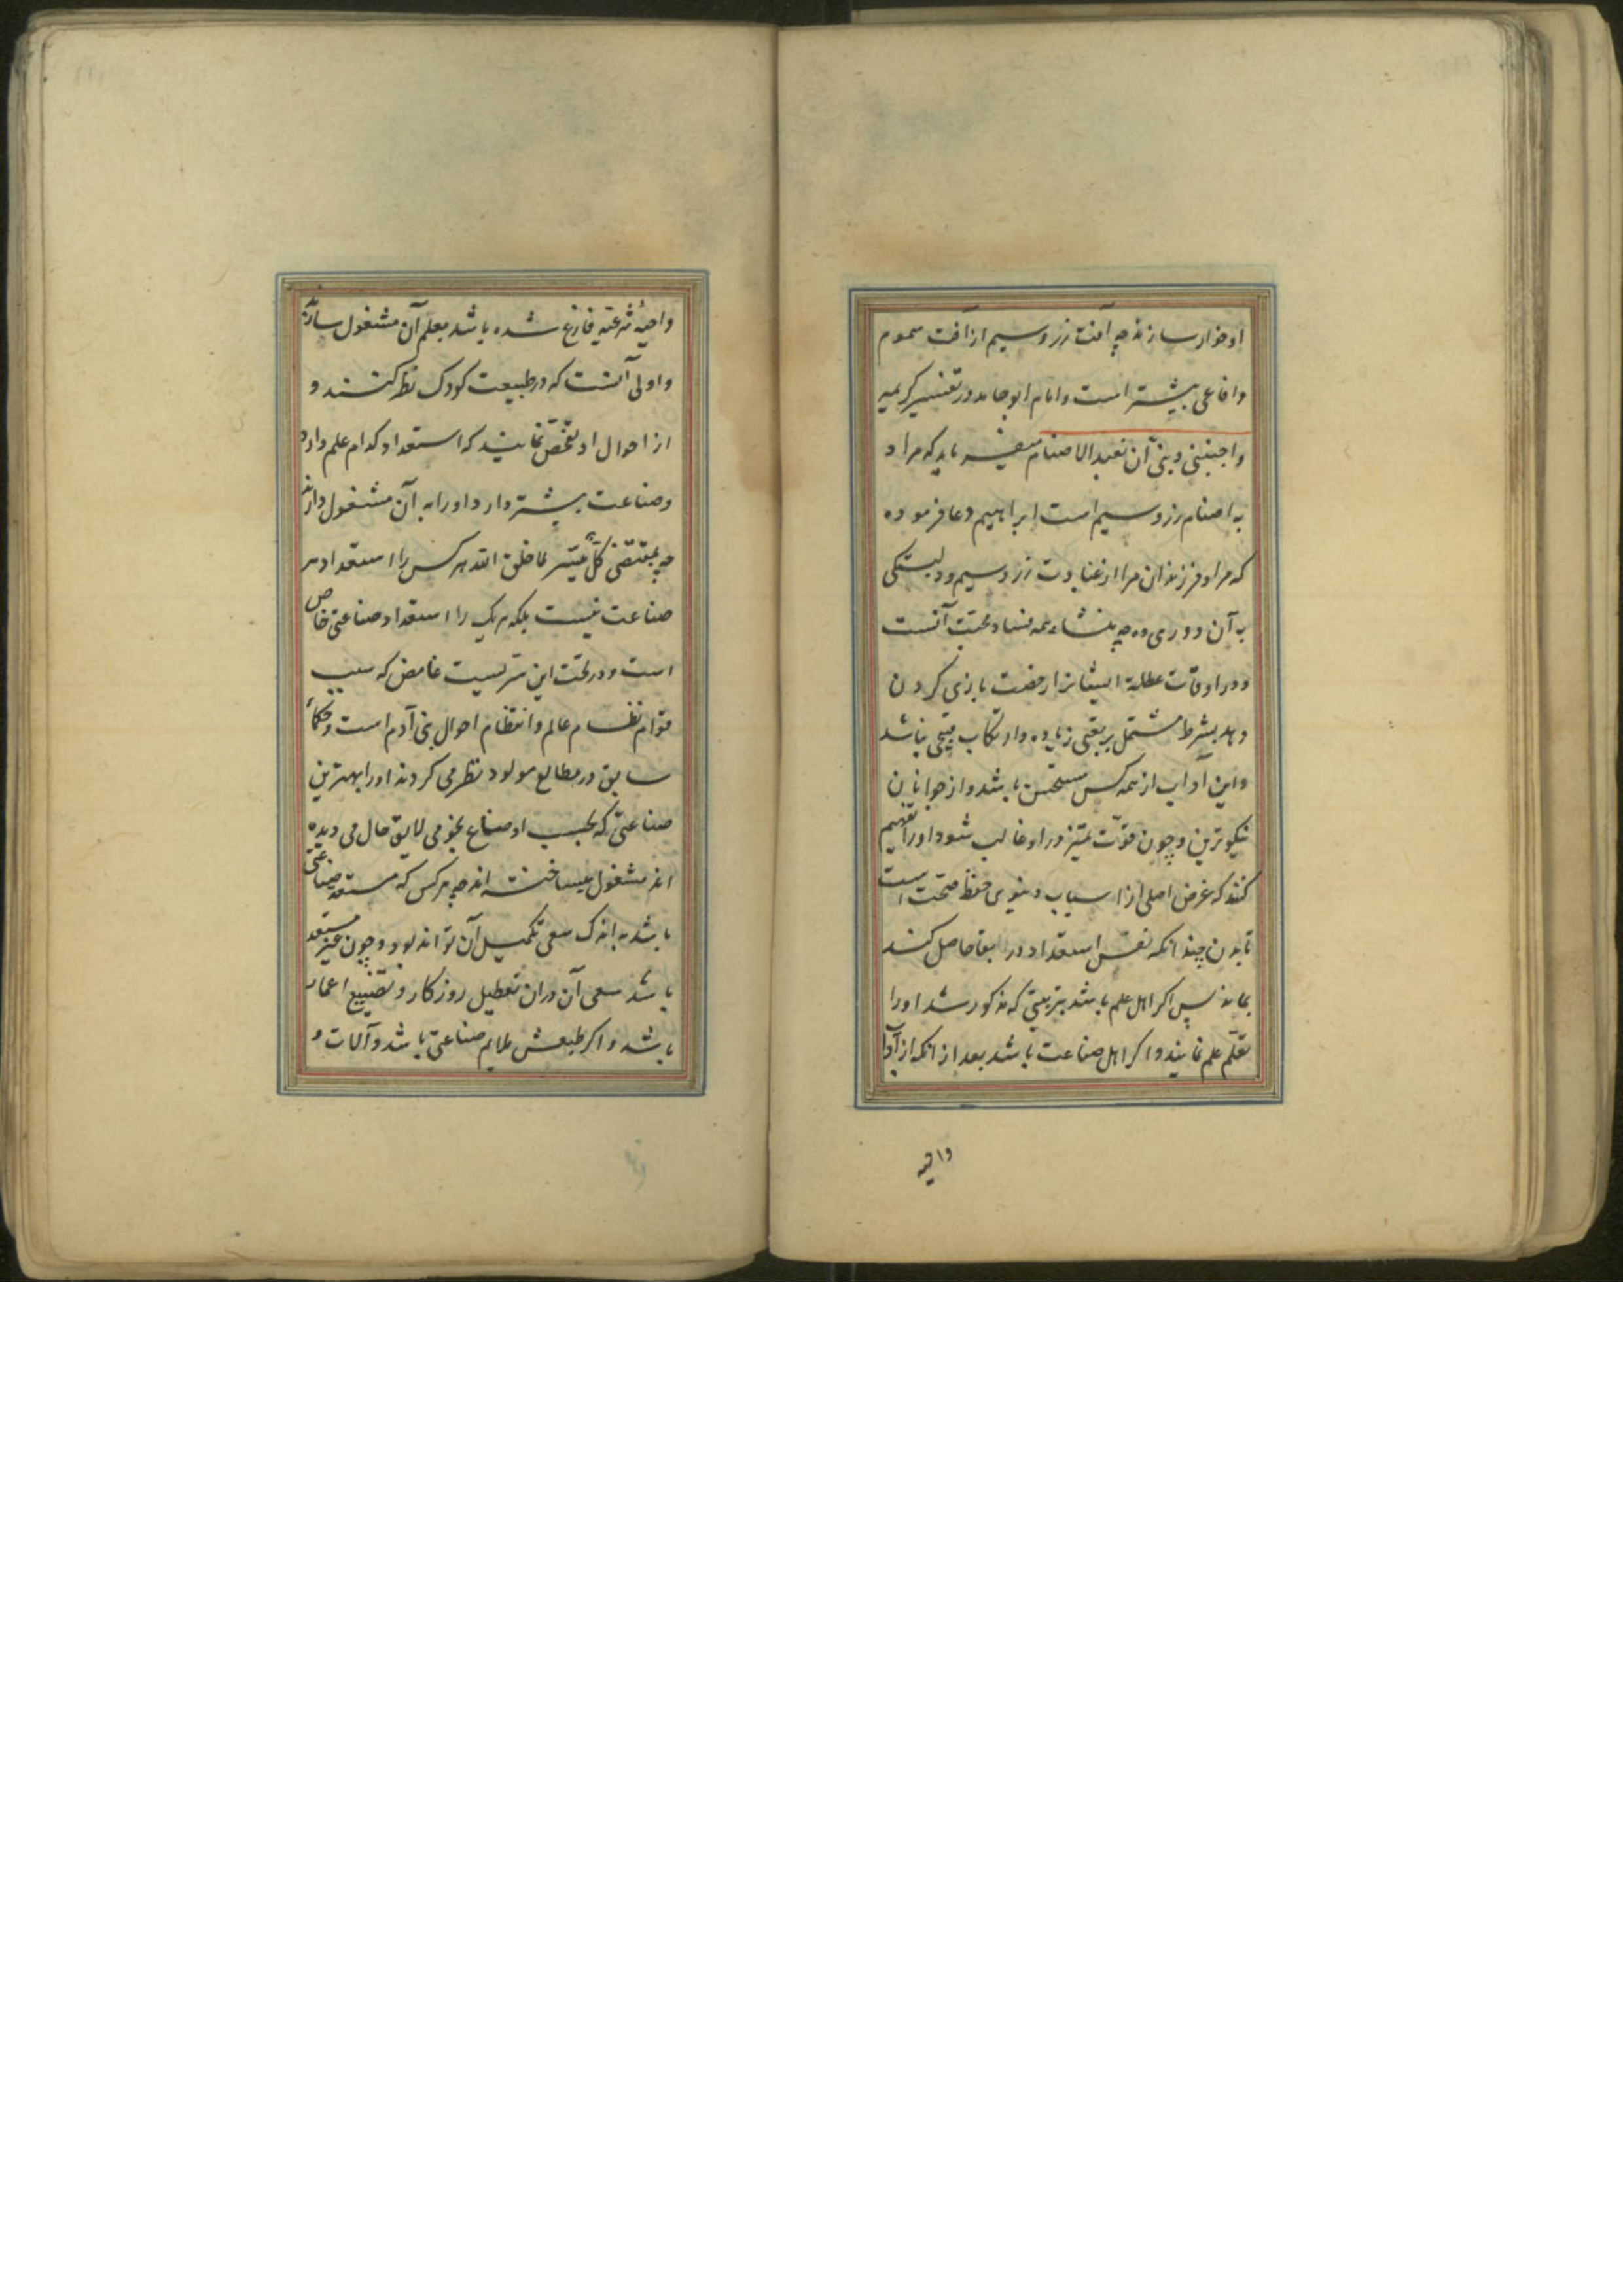 او خوار سازند چه آفت زر و سیم از آفت سموم
و افاعی بیشتر است و امام ابو حامد در تفسیر کریمه
و اجنبنی و بنی آن نعبد الاصنام میفرماید که مراد
به اصنام زر و سیم است ابراهیم دعا فرموده
که مرا و فرزندان مرا از عبادت زر و سیم و دلبستگی
به آن دوری ده چه منشاء همه فساد محبت آنست
و در اوقات عطله ایشانرا رخصت بازی کردن
دهد بشرط مشتمل بر تعبی زیاده و ارتکاب قبحی نباشد
و این آداب از همه کس مستحسن باشد و از جوانان
نیکوترین و چون قوّت تمیز در او غالب شود او را تفهیم
کنند که غرض اصلی از اسباب دنیوی حفظ صحت است
تا بدن چندانکه نفس استعداد در البقا حاصل کند
بماند پس اگر اهل علم باشد بتربیتی که مذکور شد او را
تعلّم علم نمایند و اگر اهل صناعت باشد بعد از انکه از آداب
واجبه
واجبهٔ شرعیّه فارغ شده باشد بعلم آن مشغول سازند
و اولی آنست که در طبیعت کودک نظر کنند و
از احوال او تفحّص نمایند که استعداد کدام علم دارد
و صناعت بیشتر دارد او را به آن مشغول دارند
چه بمقتضی کلّ میّسر لما خلق الله هر کس را استعداد هر
صناعت نیست بلکه هر یک را استعداد صناعتی خاص
است و در تحت این سّریست غامض که سبب
قوام نظام عالم و انتظام احوال بنی آدم است و حکماء
سابق در مطالع مولود نظر می کردند او را بهترین
صناعتی که بحسب اوضاع نجومی لایق حال می دیده
اند مشغول میساخته اند چه هر کس که مستعد صناعتی
باشد به اندک سعی تکمیل آن تواند بود و چون غیر مستعد
باشد سعی آن در ان تعطیل روزگار و تضییع اعمار
باشد و اگر طبعش ملایم صناعتی باشد و آلات و